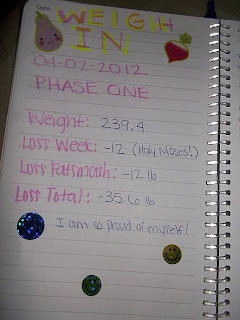 Date
WEIGH
IN
04-02-2012.
PHASE ONE
Weight: 239.4
Loss Week: -12 (Holy Moses!)
Loss Fatsmash: -12 lb
Loss Total: -35.6 lb
I am so proud of myself!